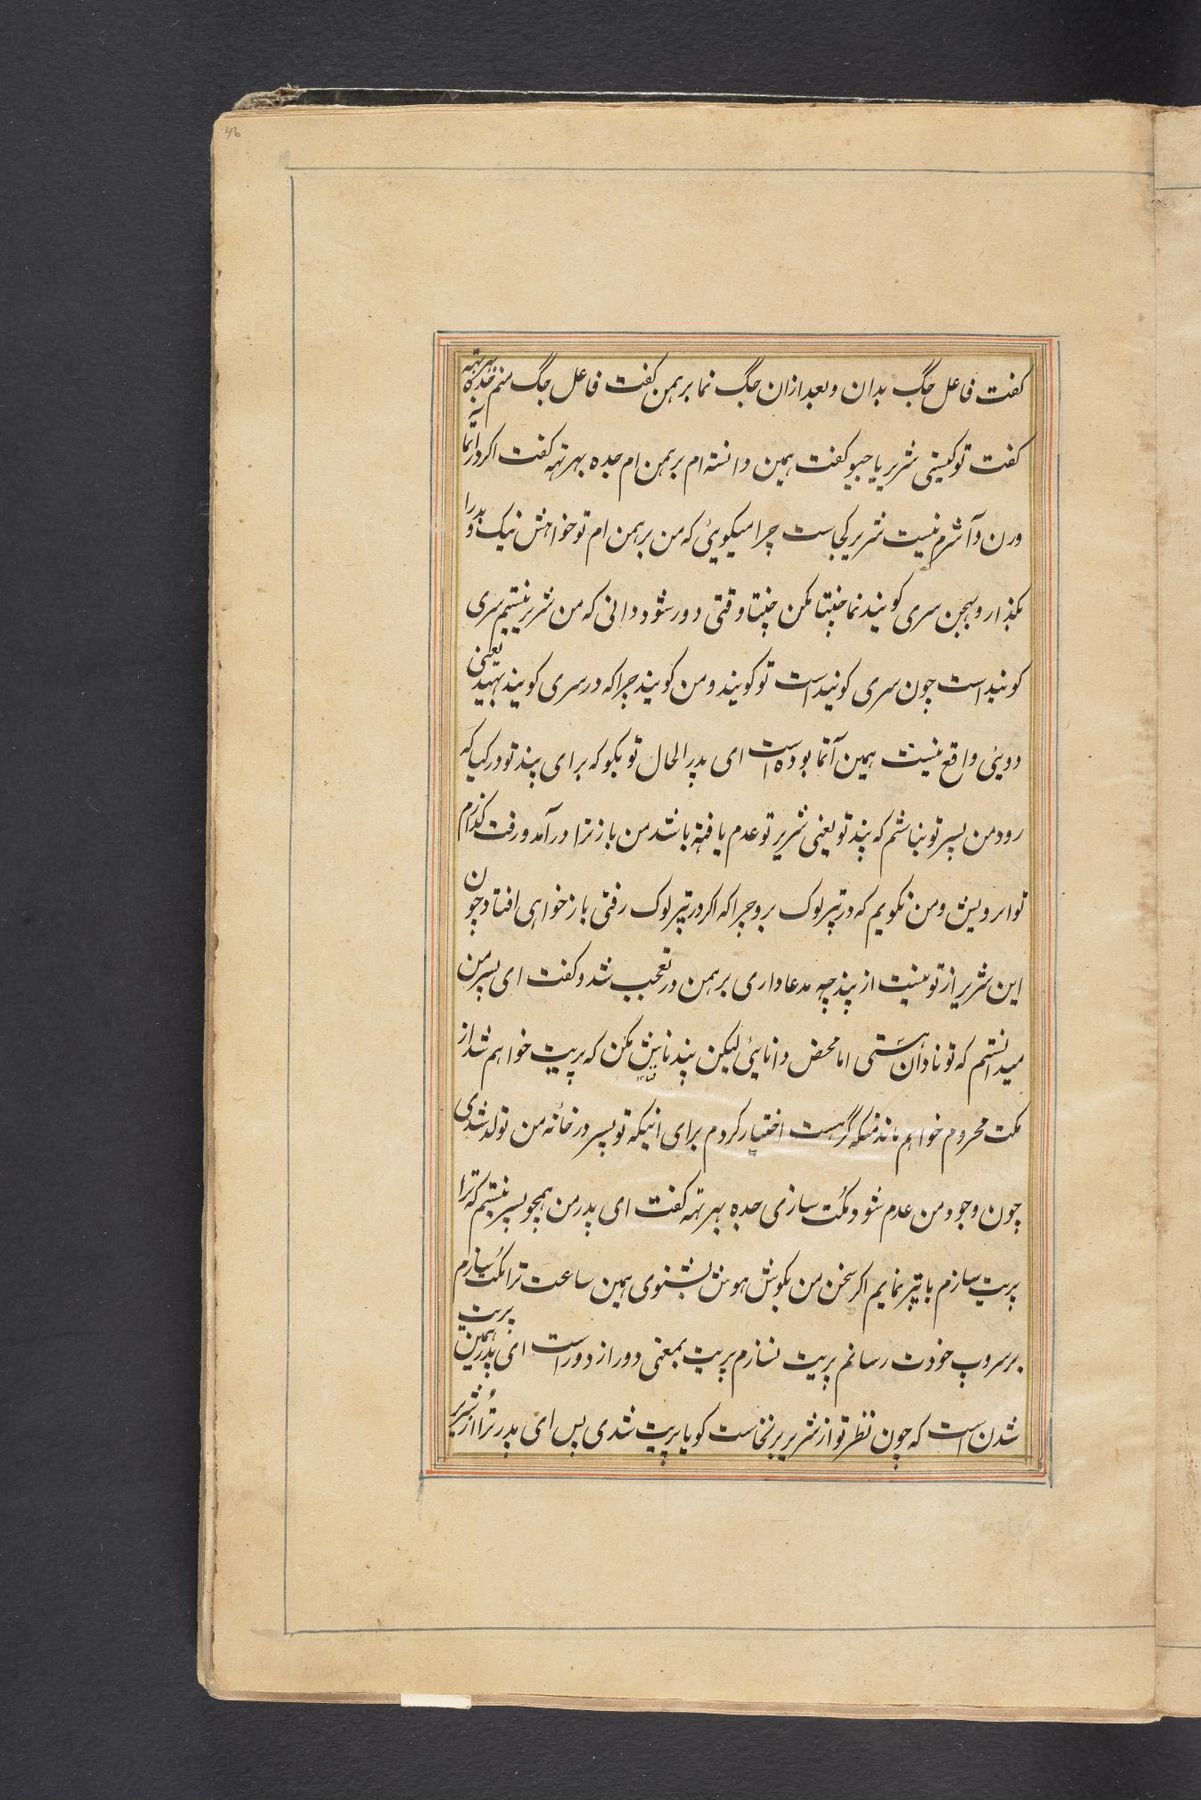 46
کفت فاعل جگ بدان و بعد ازان جگ نما برهمن کفت فاعل جگ منم جده بهرتهه
کفت تو کیستی شریر یا جیو کفت همین دانسته ام برهمن ام جده بهرتهه کفت اکر در آتما
ورن و آشرم نیست شریر کجاست چرا میکوئی که من برهمن ام تو خواهش نیک و بد را
بکذار و بهجن سری کوبیند نما چنتا مکن چنتا وقتی دور شود دانی که من شریر نیستم سری
کوبیند است چون سری کوبیند است تو کوبیند و من کوبیند چرا که در سری کوبیند بهید یعنی
دوئی واقع نیست همین آتما بوده است ای پدر الحال تو بکو که برای پند تو در کیا که
رود من پسر تو نباشم که پند تو یعنی شریر تو عدم یافته باشد من باز ترا در آمد و رفت نکذارم
تو ابرو پیش و من نکویم که در پتر لوک برو چرا که اکر در پتر لوک رفتی باز خواهی افتاد چون
این شریر از تو نیست از پند چه مدعا داری برهمن در تعجب شد و کفت ای پسر من
میدانستم که تو نادان هستی اما محض دانایئ لیکن پند ناپیش مکن که پریت خواهم شد از
مکت محروم خواهم ماند که کرهست اختیار کردم برای اینکه تو پسر در خانه من تولد شدی
چون وجود من عدم شود مکت سازی جده بهرتهه کفت ای پدر من همچو پسر نیستم که ترا
پریت سازم یا پتر نمایم اکر سخن من بکوش هوش بشنوی همین ساعت ترا مکت سازم
برسروپ خودت رسانم پریت نسازم پریت بمعنی دور از دور است ای پدر همین پریت
شدن است که چون نظر تو از شریر برنخاست کویا پریت شدی پس ای پدر ترا از شریر